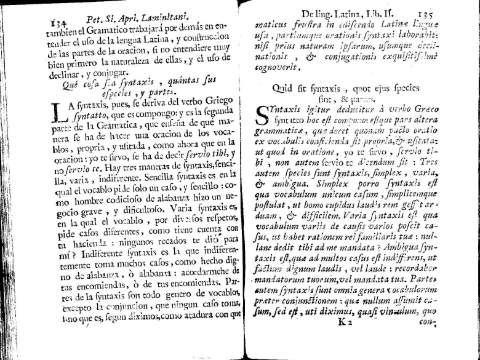 134 Pet. Si. Apri. Laminitani.
tambien el Gramatico trabajará por demás en en-
tender el uso de la lengua Latina, y construccion
de las partes de la oracion, si no entendiere muy
bien primero la naturaleza de ellas, y el uso de
declinar, y conjugar.
Què cosa sea syntaxis, quántas sus
especies, y partes.
LA syntaxis, pues, se deriva del verbo Griego
syntatto, que es compongo: y es la segunda
parte de la Gramatica, que enseña de qué ma-
nera se ha de hacer una oracion de los voca-
blos, propria, y usitada, como ahora que en la
oracion: yo te sirvo, se ha de decir servio tibi, y
no servio te. Hay tres maneras de syntaxis, senci-
lla, varia, indiferente. Sencilla syntaxis es en la
qual el vocablo pide solo un caso, y sencillo: co-
mo hombre codicioso de alabanza hizo un ne-
gocio grave, y dificultoso. Varia syntaxis es,
en la qual el vocablo, por diversos respetos,
pide casos diferentes, como tiene cuenta con
su hacienda: ningunos recados te dió para
mí? Indiferente syntaxis es la que indiferen-
temente toma muchos casos, como hecho dig-
no de alabanza, ò alabanza: acordarmehe de
tus encomiendas, ò de tus encomiendas. Par-
tes de la syntaxis son todo genero de vocablos,
excepto la conjuncion, que ningun caso toma,
sino que es, segun diximos, como atadura con que
De ling. Latina, Lib. II. 135
maticus frustra in discendo Latinæ linguæ
usu, partiumque orationis syntaxi laborabit:
nisi prius naturam ipsarum, usumque decli-
nationis, & conjugationis exquisitissime
cognoverit.
Quid sit syntaxis, quot ejus species
sint, & partes.
SYntaxis igitur deducitur à verbo Græco
syntatto hoc est compono: estque pars altera
grammaticæ, quæ docet quonam pacto oratio
ex vocabulis constituenda sit propria, & usitata:
ut quod in oratione, yo te sirvo, servio ti-
bi, non autem servio te dicendum sit: Tres
autem species sunt syntaxis, simplex, varia,
& ambigua. Simplex porro syntaxis est
qua vocabulum unicum casum, simplicemque
postulat, ut homo cupidus laudis rem gessit ar-
duam, & difficilem. Varia syntaxis est qua
vocabulum variis de causis varios poscit ca-
sus, ut habet rationem rei familiaris tuæ: nul-
lane dedit tibi ad me mandata? Ambigua syn-
taxis est, quæ ad multos casus est indifferens, ut
facinus dignum laudis, vel laude: recordabor
mandatorum tuorum, vel mandata tua. Partes
autem syntaxis sunt omnia genera vocabulorum
præter conjunctionem: quæ nullum assumit ca-
sum, sed est, uti diximus, quasi vinculum, quo
K 2 con-